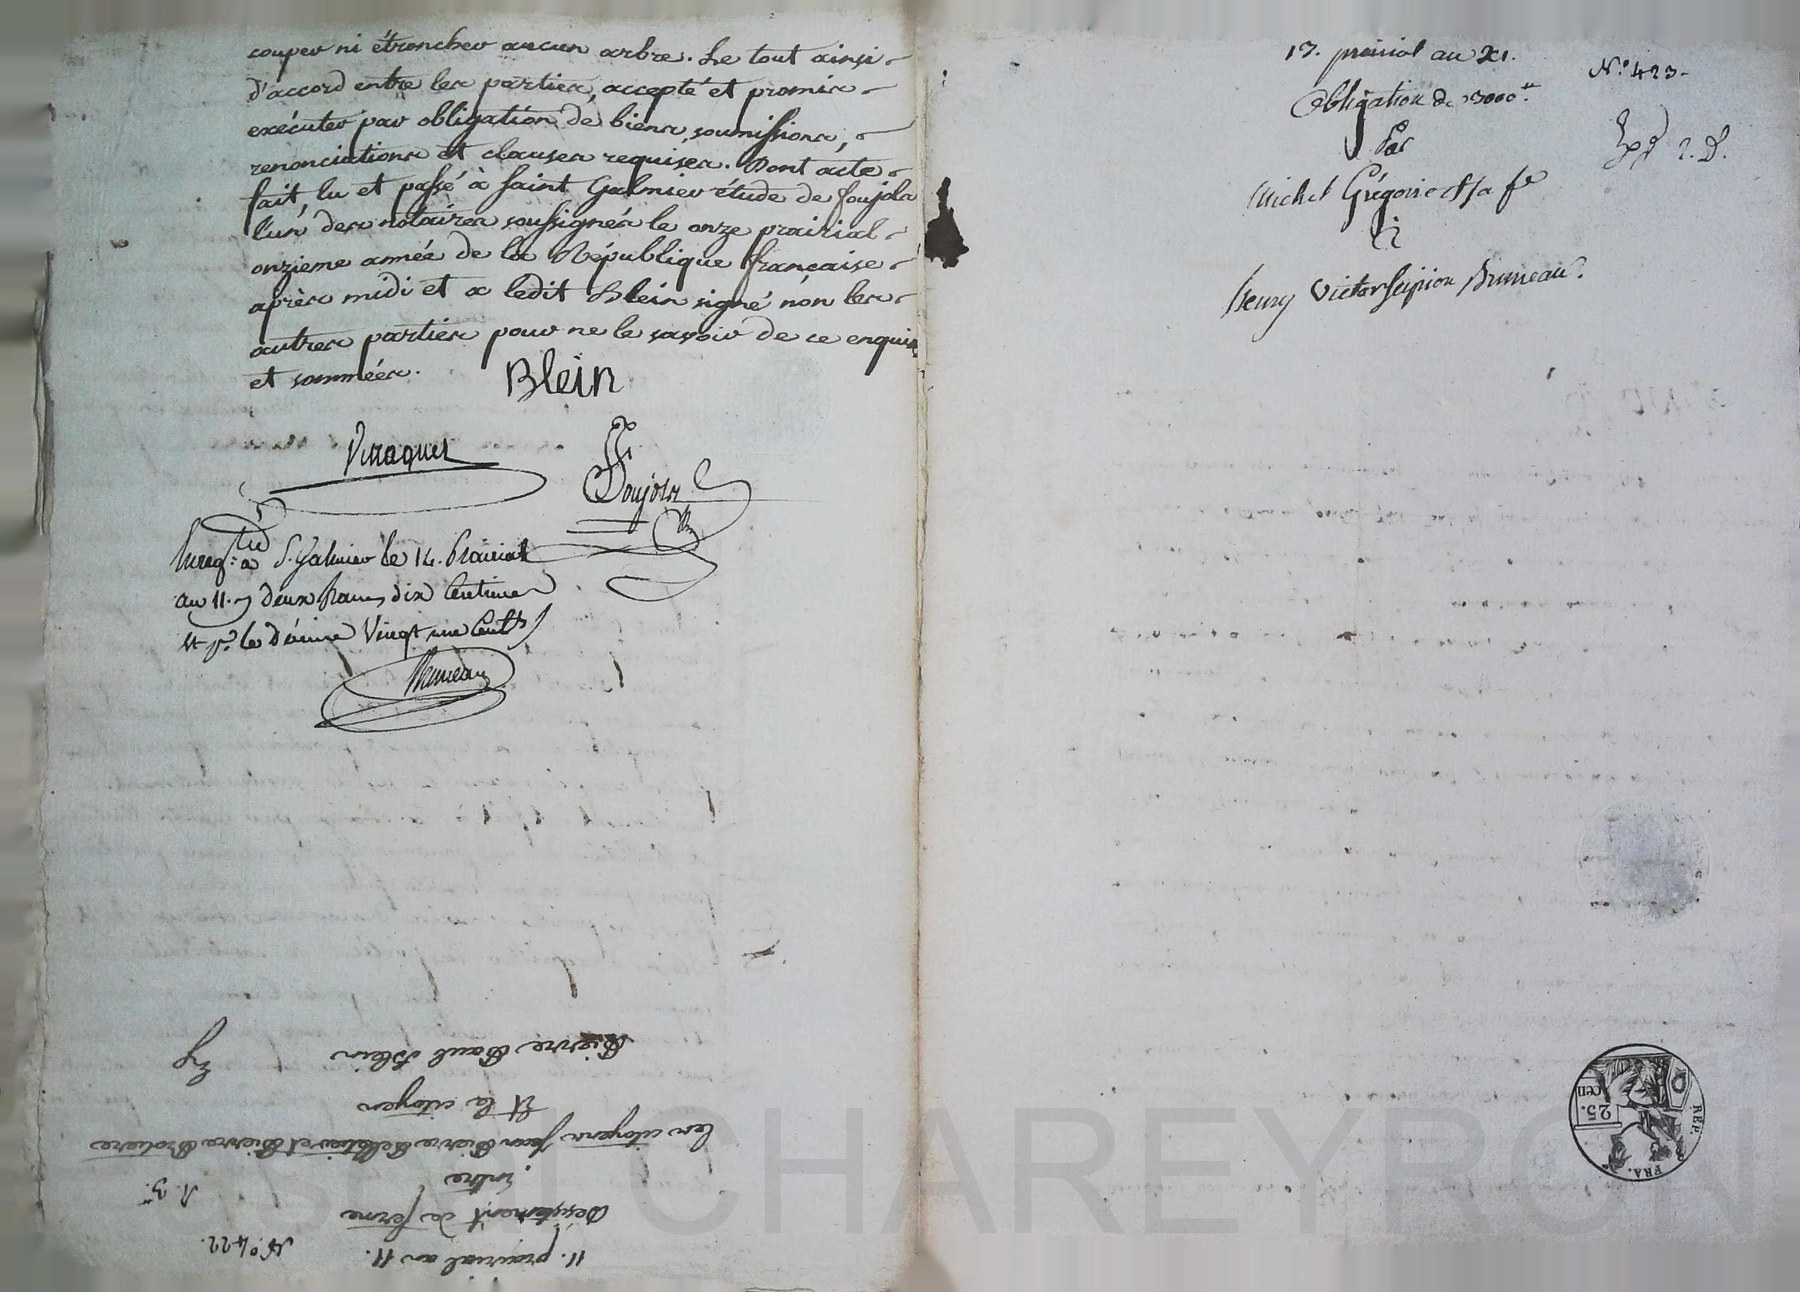 couper ni étroncher aucun arbre. Le tout ainsi
d'accord entre les parties, accepté et promis
exécuter par obligation de biens, soumissions,
renonciations et clauses requises. Dont acte
fait, lu et passé à Saint Galmier étude de Poujols
l'un des notaires soussignés le onze prairial
onzieme année de la République française
après midi et a ledit Blein signé non les
autres parties pour ne le savoir de ce enquis
et sommées.
Blein
Viraquet
Poujols
Enreg.tré à S. Galmier le 14. Prairial
an 11. deux francs dix Centimes
et p.r le décime Vingt une Cent.s
Bruneau
Pierre Paul Blein
Et le citoyen
Les citoyens Jean Pierre et Pierre
entre
Désistement de ferme
11. prairial an 11.
N.º 422.
13. prairial an XI.
N.º 423.
Obligation de 3000.tt
Par
Michel Grégoire et sa fe
à
Henry Victor Scipion Bruneau.
RÉP.
FRA.
25.
cen
CHAREYRON